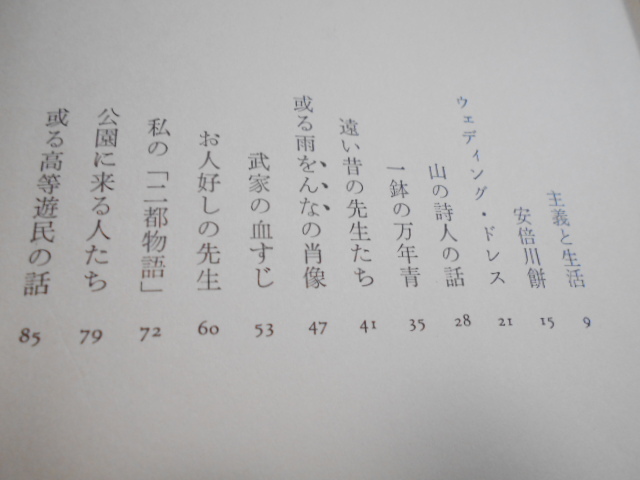 主義と生活 9
安倍川餅 15
ウェディング・ドレス 21
山の詩人の話 28
一鉢の万年青 35
遠い昔の先生たち 41
或る雨をんなの肖像 47
武家の血すじ 53
お人好しの先生 60
私の「二都物語」 72
公園に来る人たち 79
或る高等遊民の話 85